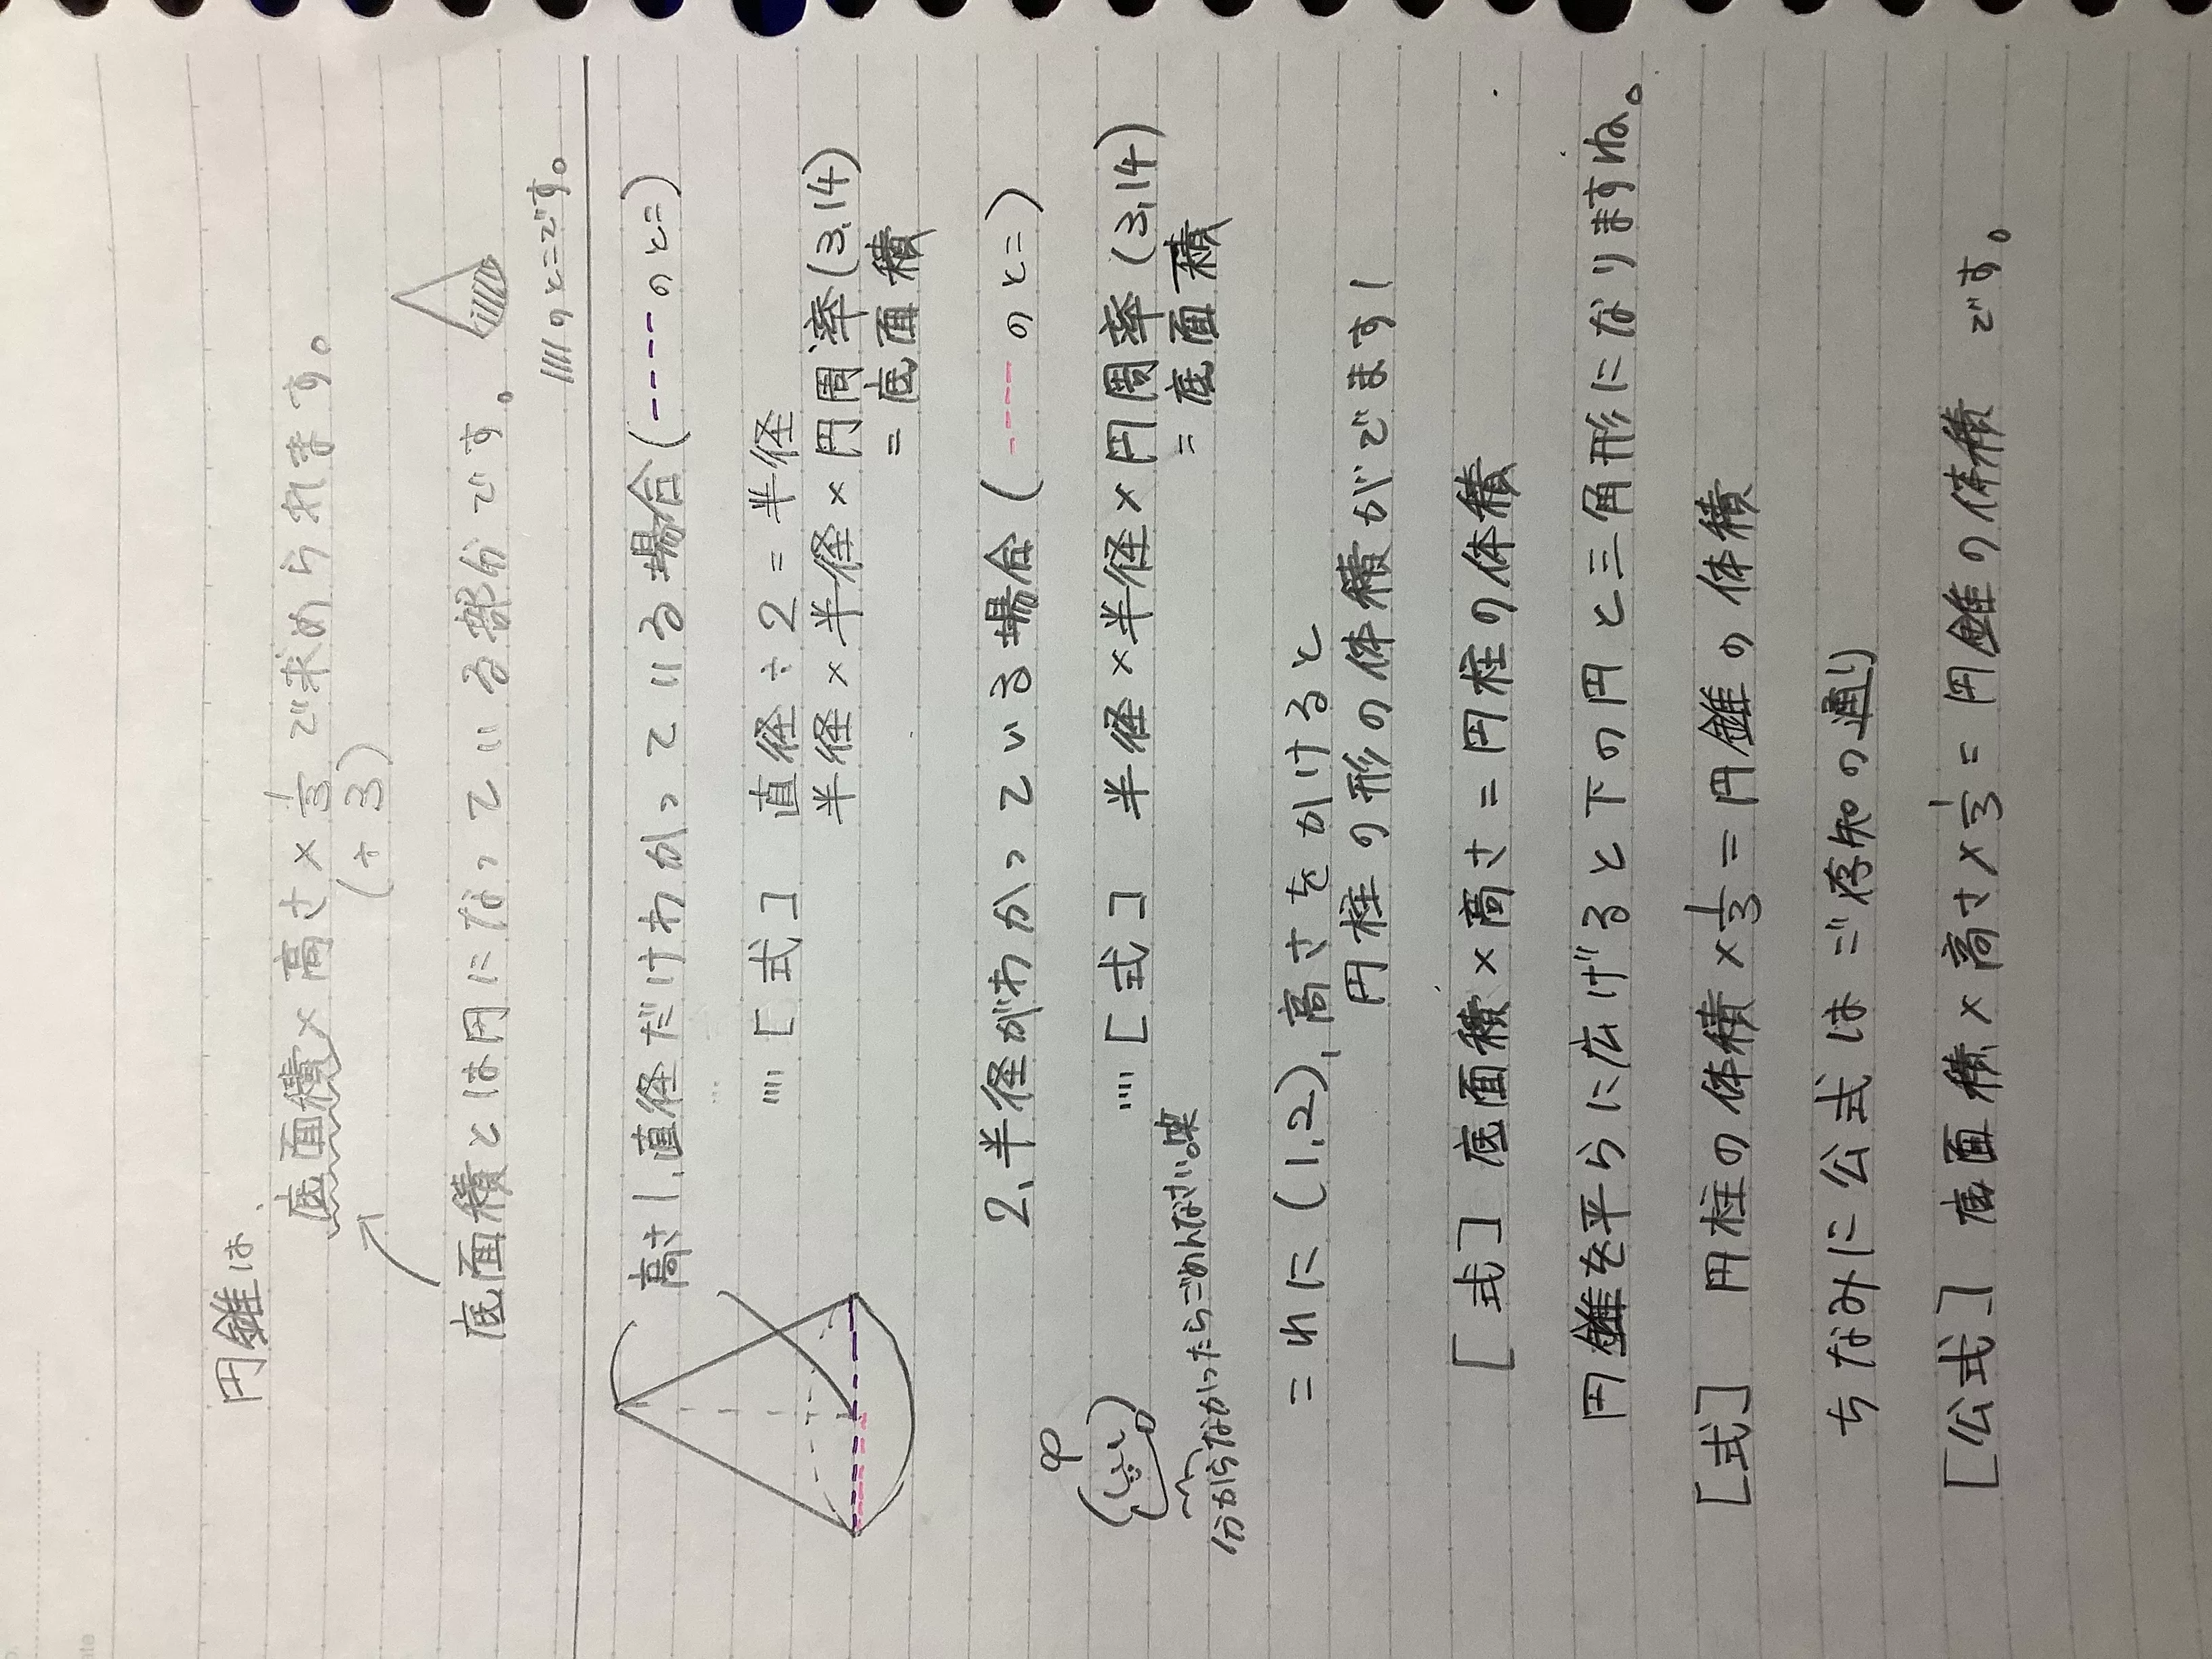 円錐は、
底面積×高さ×1/3で求められます。
(÷3)
底面積とは円になっている部分です。
////のとこです。
高さ
1.直径だけわかっている場合(-----のとこ)
…[式] 直径÷2=半径
半径×半径×円周率(3.14)
=底面積
2.半径がわかっている場合(----のとこ)
…[式] 半径×半径×円周率(3.14)
=底面積
分からなかったらごめんなさい。笑
これに(1.2)、高さをかけると
円柱の形の体積がでます!
[式] 底面積×高さ=円柱の体積
円錐を平らに広げると下の円と三角形になりますね。
[式] 円柱の体積×1/3=円錐の体積
ちなみに公式はご存知の通り
[公式] 底面積×高さ×1/3=円錐の体積 です。